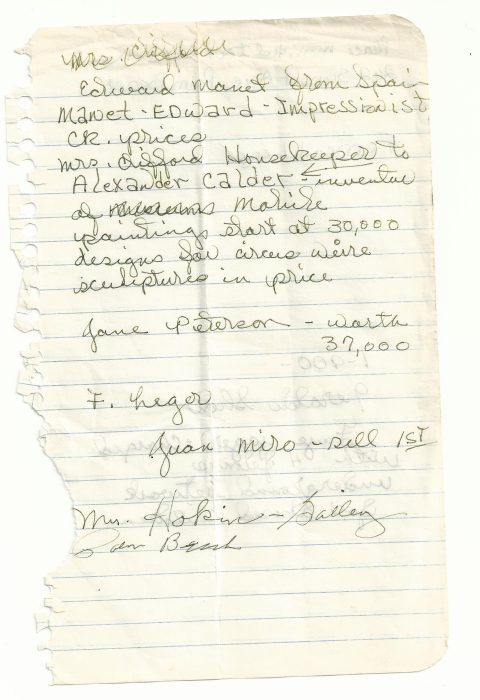 Mrs.
Edward Manet from Spain
Manet - EDward - Impressionist
CK. prices
Mrs. Gifford Housekeeper to
Alexander Calder ← inventue
of Mobile
paintings start at 30,000
designs for circus wire
sculptures in price
Jane Peterson - worth
37,000
F. Leger
Juan Miro - sell 1ST
Mrs. Hokin - Gallery
Palm Beach